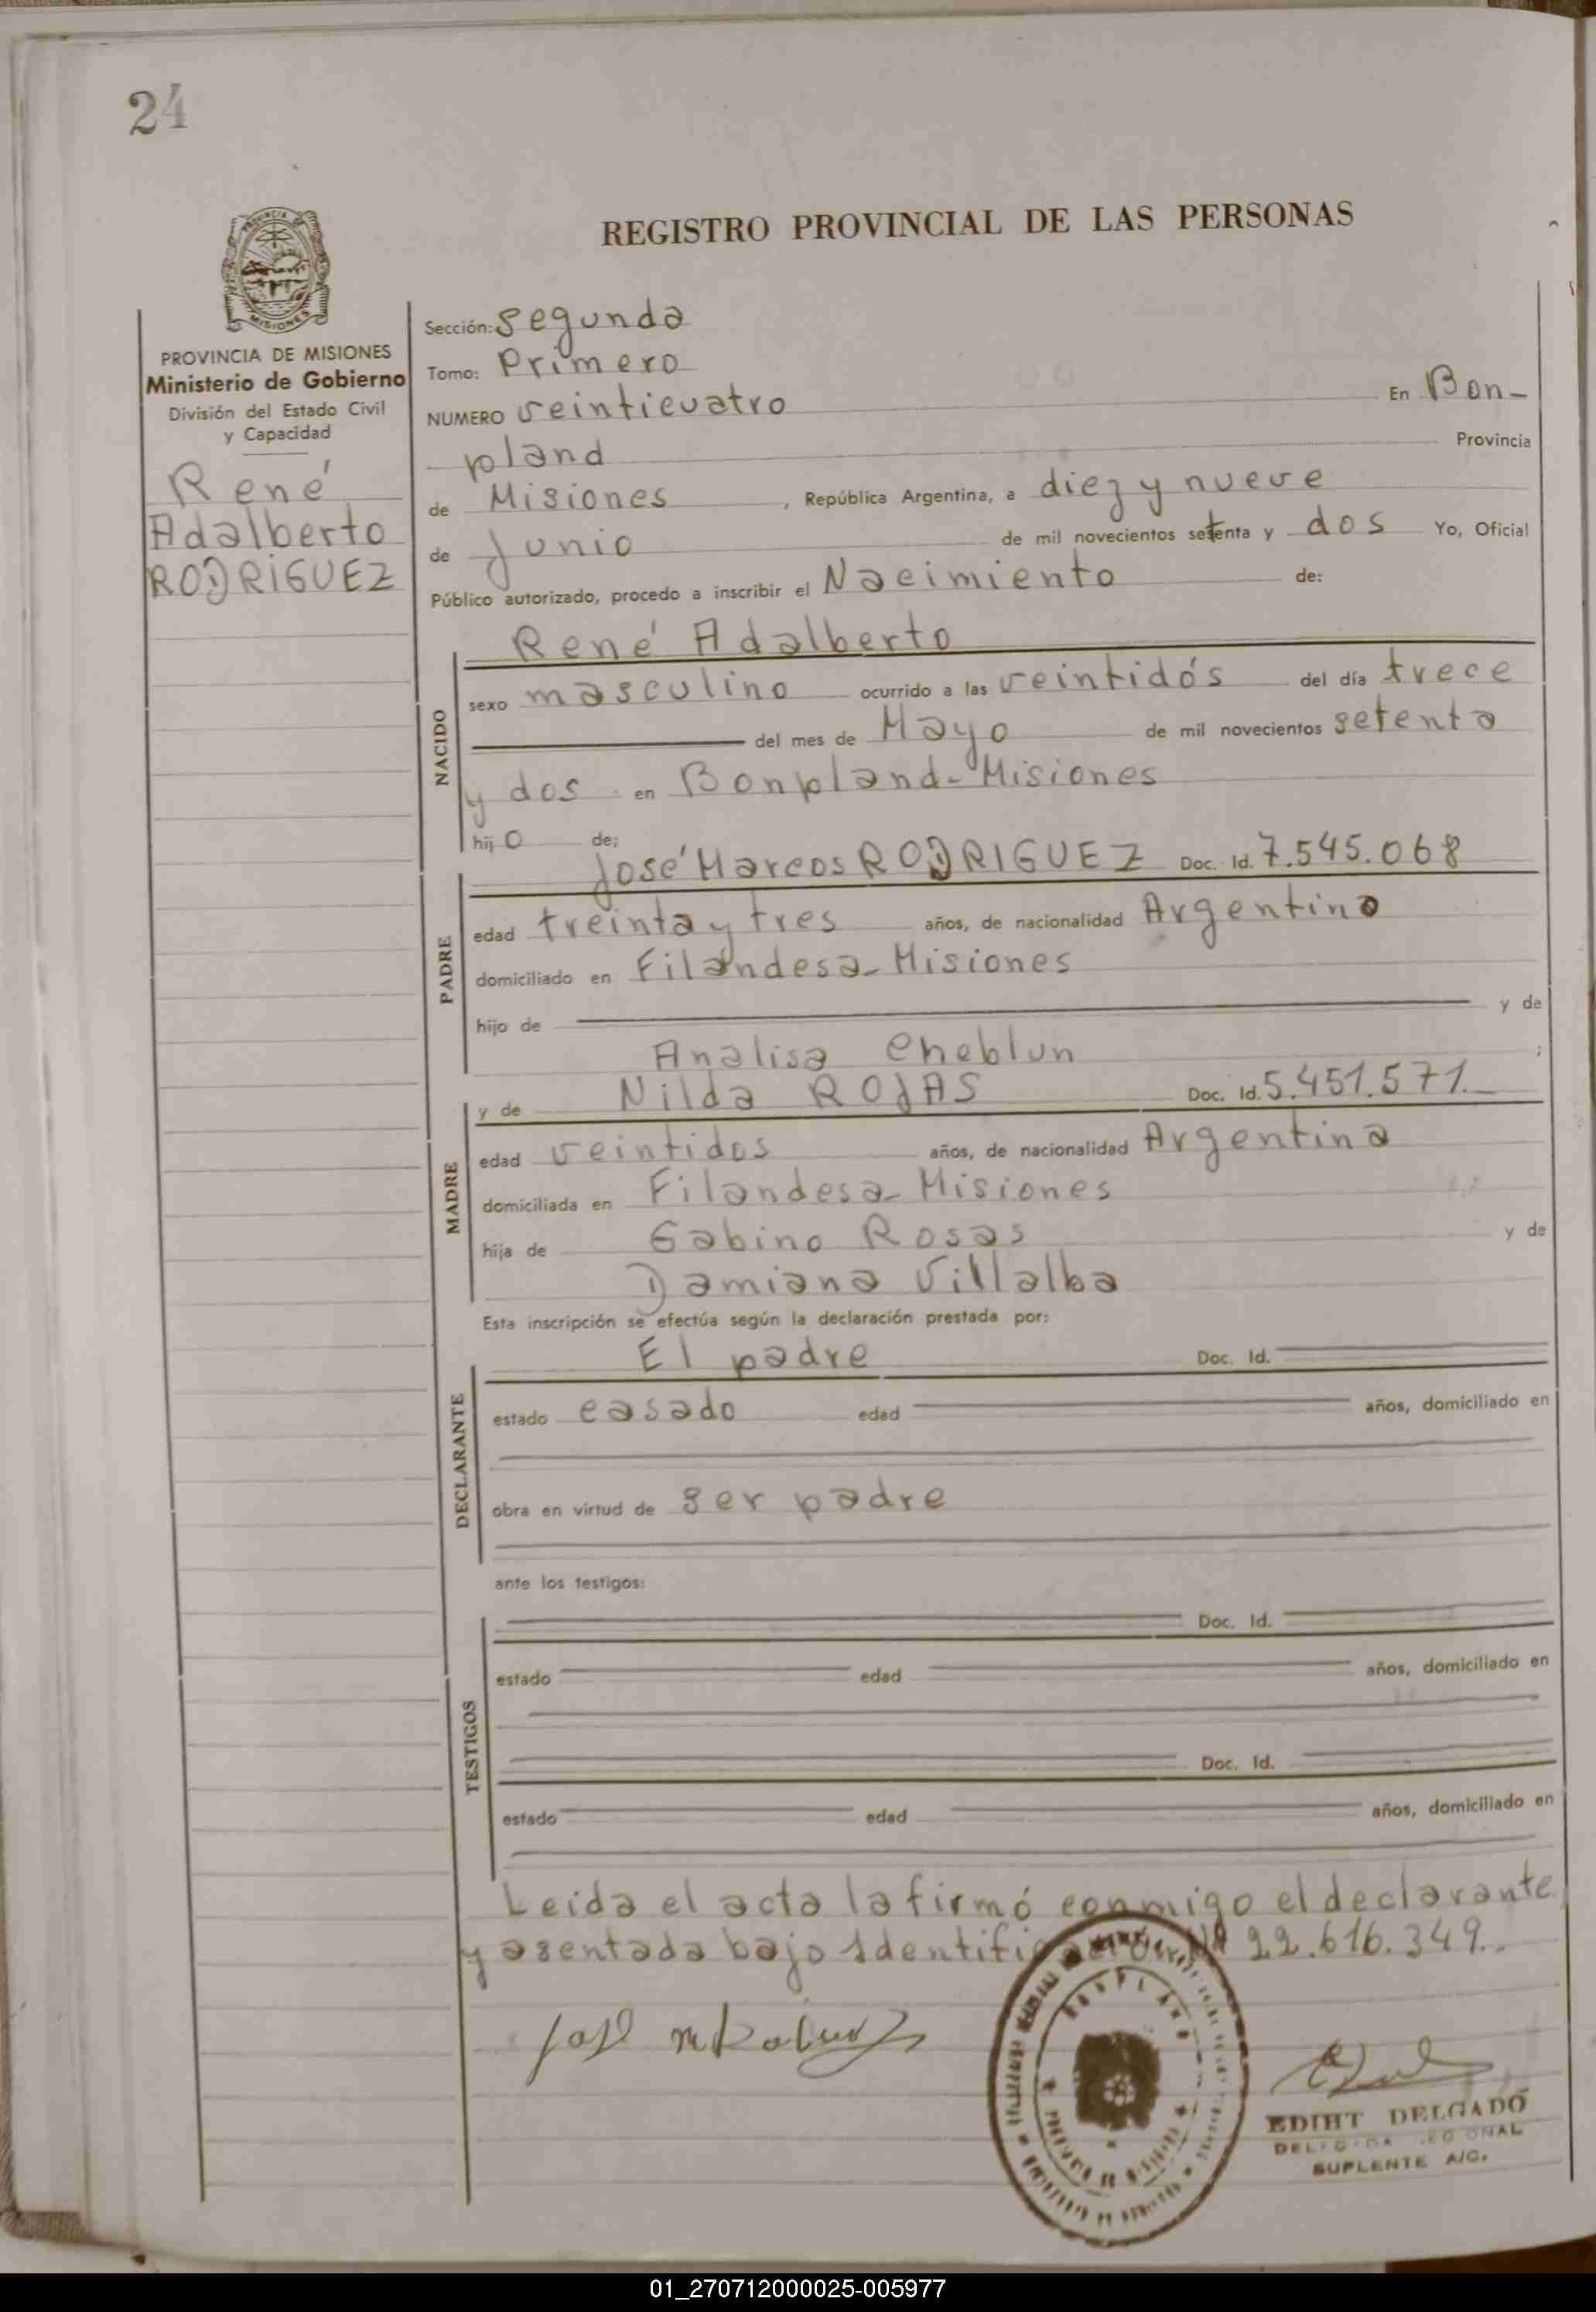 24
REGISTRO PROVINCIAL DE LAS PERSONAS
MISIONES
PROVINCIA DE MISIONES
Ministerio de Gobierno
División del Estado Civil
y Capacidad
René
Adalberto
RODRIGUEZ
Sección: Segunda
Tomo: Primero
NUMERO veinticuatro En Bon-
pland Provincia
de Misiones, República Argentina, a diez y nueve
de Junio de mil novecientos setenta y dos Yo, Oficial
Público autorizado, procedo a inscribir el Nacimiento de:
NACIDO
René Adalberto
sexo masculino ocurrido a las veintidós del día trece
del mes de Mayo de mil novecientos setenta
y dos en Bonpland-Misiones
hijo de;
PADRE
José Marcos RODRIGUEZ Doc. Id. 7.545.068
edad treinta y tres años, de nacionalidad Argentino
domiciliado en Filandesa-Misiones
hijo de y de
Analisa Cheblun ;
MADRE
y de Nilda ROJAS Doc. Id. 5.451.571.
edad veintidos años, de nacionalidad Argentina
domiciliada en Filandesa-Misiones
hija de Gabino Rosas y de
Damiana Villalba
Esta inscripción se efectúa según la declaración prestada por:
DECLARANTE
El padre Doc. Id.
estado casado edad años, domiciliado en
obra en virtud de ser padre
ante los testigos:
TESTIGOS
Doc. Id.
estado edad años, domiciliado en
Doc. Id.
estado edad años, domiciliado en
Leída el acta la firmó conmigo el declarante
y asentada bajo Identificación Nº 22.616.349.
EDIHT DELGADO
SUPLENTE A/C.
01_270712000025-005977